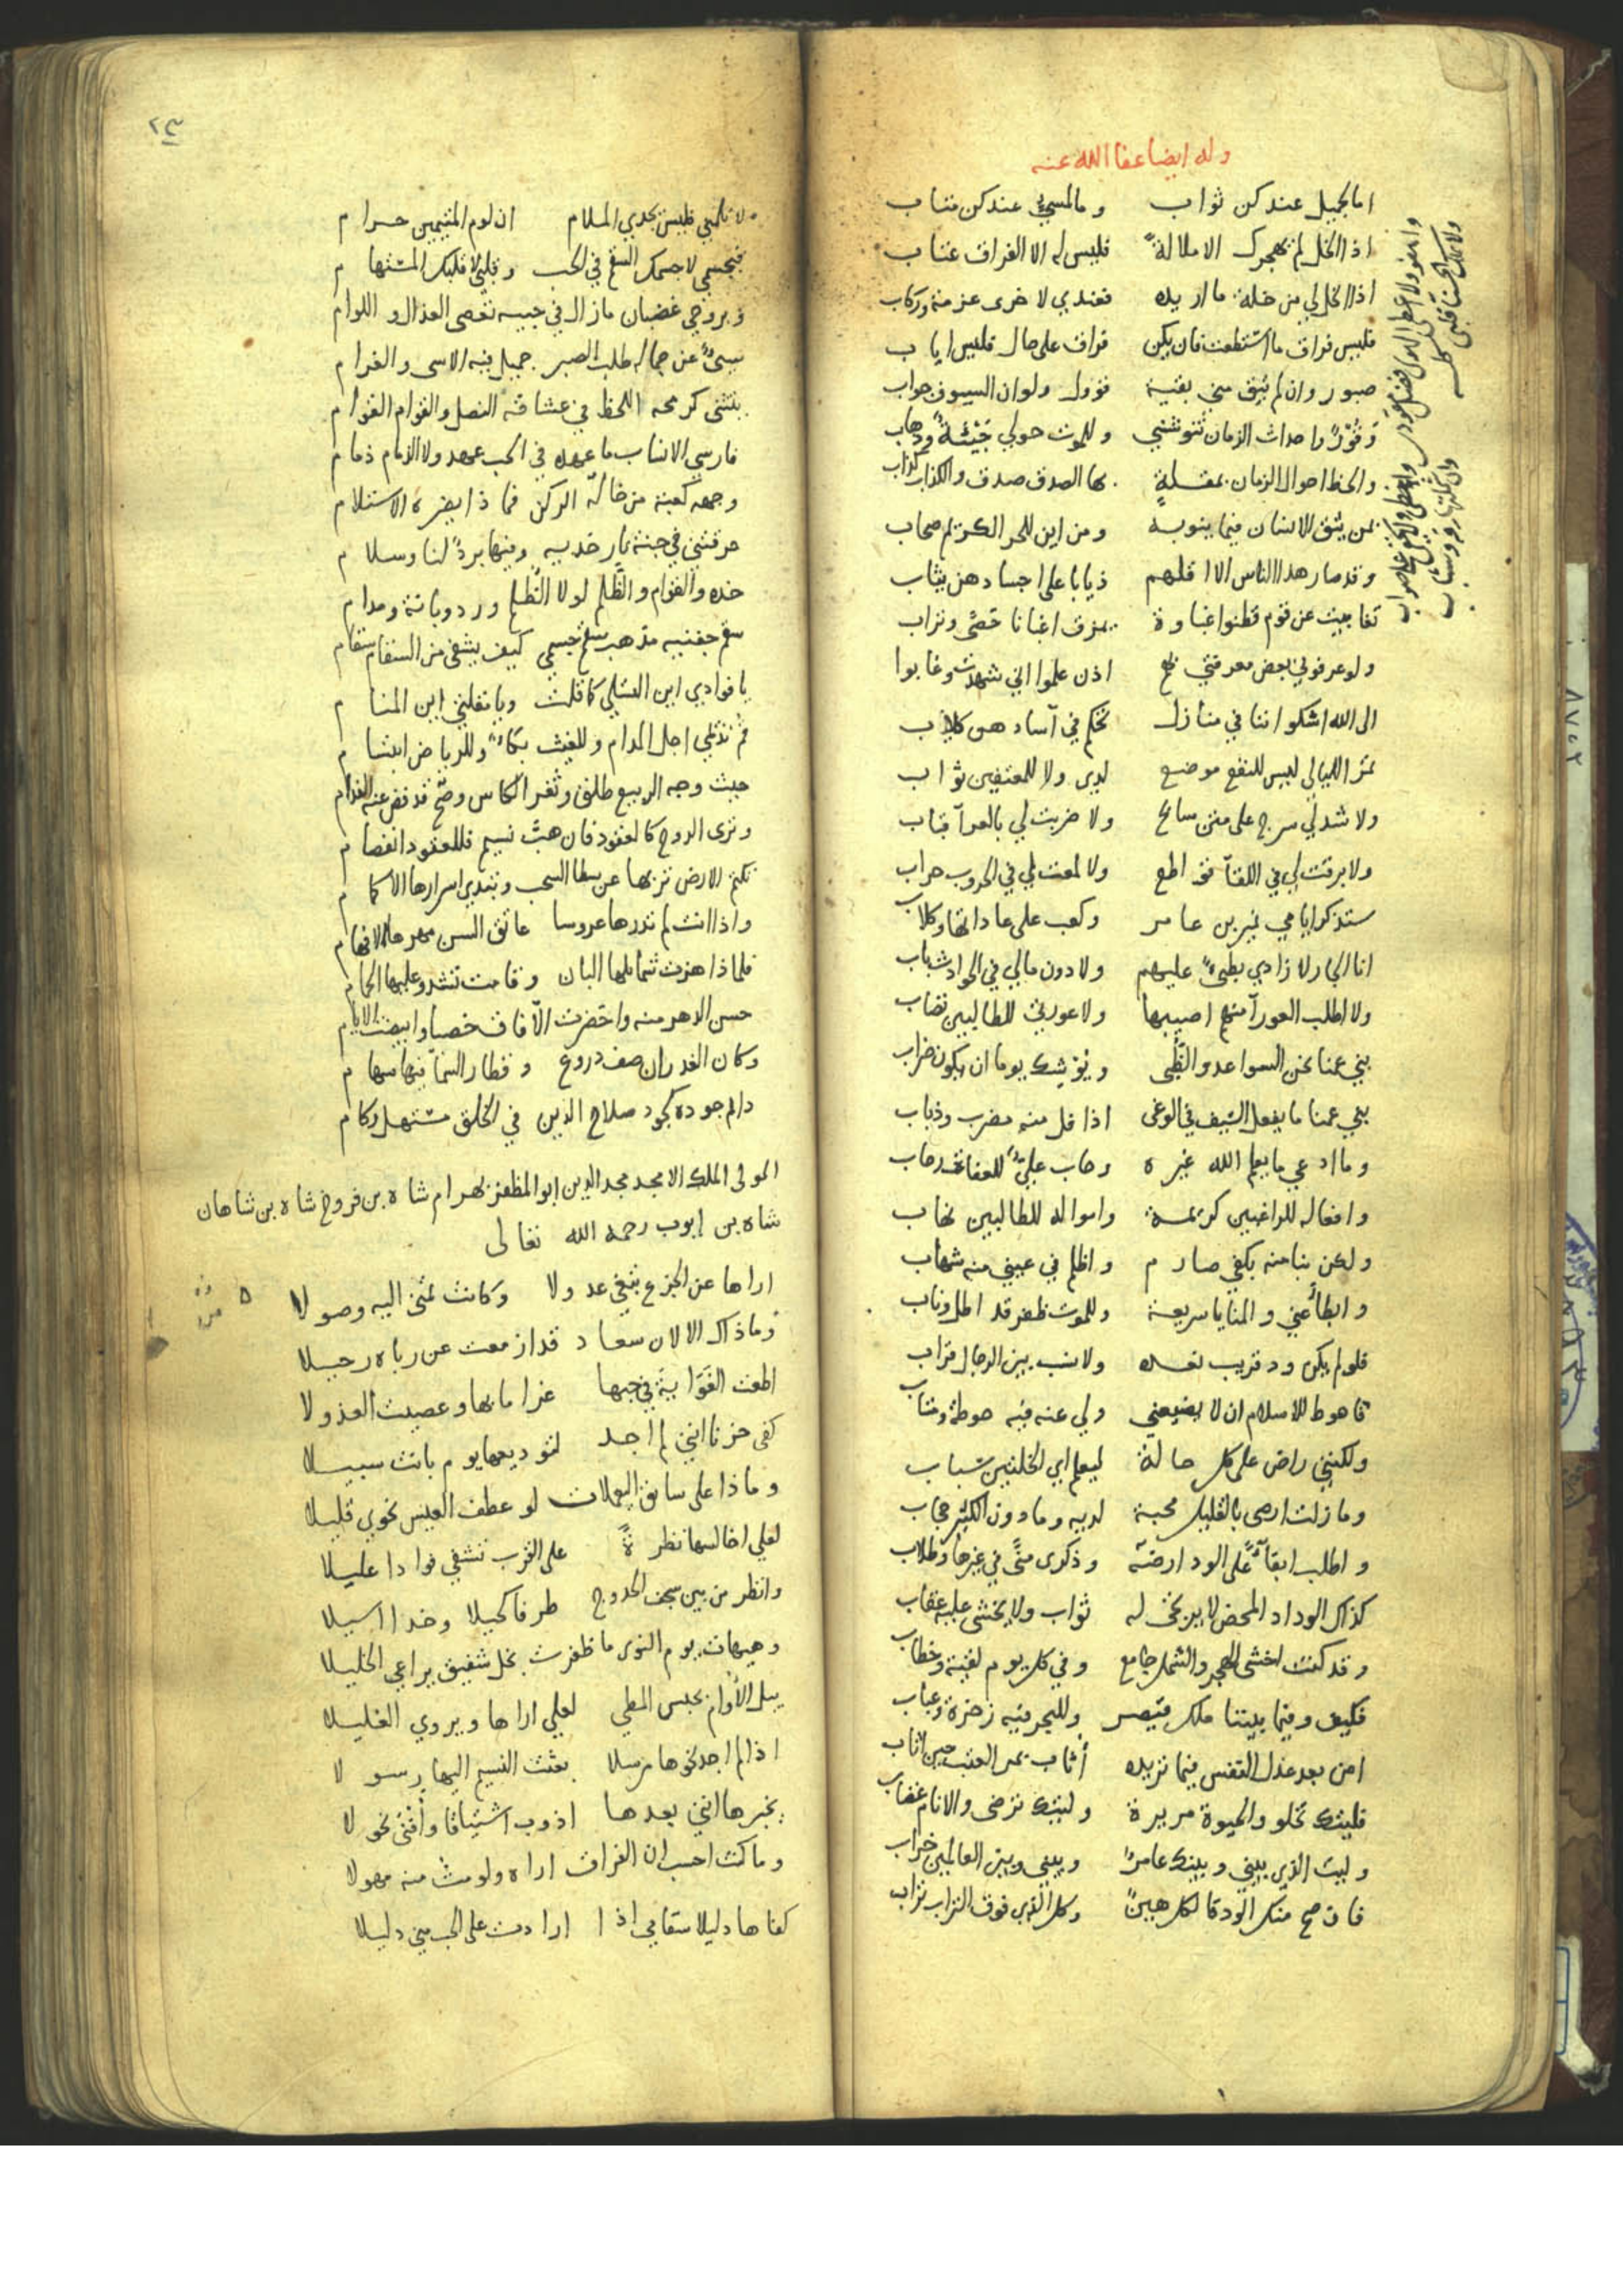 وله ايضا عفا الله عنه
اما لجميل عندكن ثواب وما لمسيء عندكن متاب
اذا الخل لم يهجرك الا ملالة فليس له الا الفراق عتاب
اذا لم اجد في من خلة ما اريده فعندي لاخرى عزمة وركاب
فليس فراق ما استطعت فان يكن فراق على حال فليس اياب
صبور وان لم يبق مني بقية قؤول ولو ان السيوف جواب
وقور واحداث الزمان تنوشني وللموت حولي جيئة وذهاب
والحظ احوال الزمان بمقلة بها الصدق صدق والكذاب كذاب
بمن يثق الانسان فيما ينوبه ومن اين للحر الكريم صحاب
وقد صار هذا الناس الا اقلهم ذيابا على اجسادهن ثياب
تغابيت عن قوم فظنوا غباوة بمفرق اغبانا حصى وتراب
ولو عرفوني بعض معرفتي بهم اذن علموا اني شهدت وغابوا
الى الله اشكوا اننا في منازل تحكم في آسادهن كلاب
تمر الليالي ليس للنفع موضع لدي ولا للمعتفين ثواب
ولا شد لي سرج على متن سابح ولا ضربت لي بالعرآ قباب
ولا برقت لي في اللقآ قواطع ولا لمعت لي في الحروب حراب
ستذكر ايامي نمير بن عامر وكعب على عاداتها وكلاب
انا الجار لا زادي بطيء عليهم ولا دون مالي في الحوادث باب
ولا اطلب العورآ منهم اصيبها ولا عورتي للطالبين تصاب
بني عمنا نحن السواعد والظبى ويوشك يوما ان يكون ضراب
بني عمنا ما يفعل السيف في الوغى اذا فل منه مضرب وذباب
وما ادعي ما يعلم الله غيره رحاب علي للعفاة رحاب
وافعاله للراغبين كريمة وامواله للطالبين نهاب
ولكن نبا منه بكفي صارم واظلم في عيني منه شهاب
وابطا عني والمنايا سريعة وللموت ظفر قد اطل وناب
فلو لم يكن ود قريب نعده ولا نسب بين الرجال قراب
فاحوط للاسلام ان لا يضيعني ولي عنه فيه حوطة ومناب
ولكنني راض على كل حالة ليعلم اي الخلتين شباب
وما زلت ارضى بالقليل محبة لديه وما دون الكثير حجاب
واطلب ابقآ على الود ارضه وذكرى منى في غيرها وطلاب
كذاك الوداد المحض لا يرتجى له ثواب ولا يخشى عليه عقاب
وقد كنت اخشى الهجر والشمل جامع وفي كل يوم لقية وخطاب
فكيف وفيما بيننا ملك قيصر وللبحر فيه زخرة وعباب
امن بعد بذل النفس فيما تريده أثاب بمر العتب حين اثاب
فليتك تحلو والحيوة مريرة وليتك ترضى والانام غضاب
وليت الذي بيني وبينك عامر وبيني وبين العالمين خراب
فان صح منك الود فالكل هين وكل الذي فوق التراب تراب
٢٣
ولا تلمني فليس يجدي الملام ان لوم المتيمين حرام
فبجسمي لا جسمك السقم في الحب وقلبي لا قلبك المستهام
وبروحي غضبان مازال في حبيه تعصى العذال واللوام
سيء عن جماله طلب الصبر جميل فيه الاسى والغرام
ينتني كرمحه اللحظ في عشاقه النصل والقوام القوام
فارسي الانساب ما عهده في الحب عهد ولا الذمام ذمام
وجهه كعبة من خاله الركن فماذا يضره الاستلام
حرقتني في جنة نار خديه وفيها برد لنا وسلام
خده والقوام والظلم لولا الظلم ورد وبانة ومدام
سقم جفنيه مذهب سقم جسمي كيف يشفى من السقام سقام
يا فوادي اين التسلي كما قلت ويا مقلتي اين المنام
قم نديمي اجل المدام وللغيث بكاء وللرياض ابتسام
حيث وجه الربيع طلق وثغر الكاس وضح قد فض عنه الفدام
وترى الدوح كالعقود فان هب نسيم فللعقود انفصام
تكتم الارض تربها عن سطا السحب وتبدي اسرارها الاكمام
واذا انت لم تدرها عروسا عاتق السن مهرها الافهام
فلماذا هزت شمايلها البان وقامت تشدو عليها الحمام
حسن الدهر منه واخضرت الآفاق خصبا وابيضت الايام
وكان الغدران صف دروع وقطار السمآ فيها سهام
دايم جوده كجود صلاح الدين في الخلق مستهل ركام
المولى الملك الامجد مجد الدين ابو المظفر بهرام شاه بن فروخ شاه بن شاهان
شاه بن ايوب رحمه الله تعالى
اراها عن الجزع تبغي عدولا وكانت تمنى اليه وصولا
وما ذاك الا لان سعاد قد ازمعت عن رباه رحيلا
اطعت الغواية في حبها غراما بها وعصيت العذولا
كفى حزنا انني لم اجد لتوديعها يوم بانت سبيلا
وماذا على سايق اليعملات لو عطف العيس نحوي قليلا
لعلي اخالسها نظرة على القرب تشفي فوادا عليلا
وانظر من بين سجف الحدوج طرفا كحيلا وخدا اسيلا
وهيهات يوم النوى ما ظفرت بخل شفيق يراعي الخليلا
يبل الأوام بحبس المطي لعلي اراها ويروي الغليلا
اذا لم اجد نحوها مرسلا بعثت النسيم اليها رسولا
يخبرها انني بعدها اذوب اشتياقا وأفنى نحولا
وما كنت احسب ان الفراق اراه ولو مت منه مهولا
كفاها دليلا سقامي اذا ارادت على الحب مني دليلا